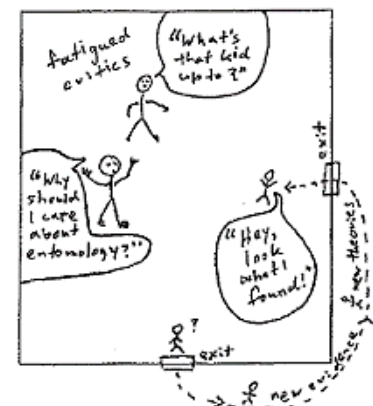 fatigued
critics
"What's
that kid
up to?"
"Why
should
I care
about
entomology?"
exit
"Hey,
look
what I
found!"
?
exit
new evidence
new theories